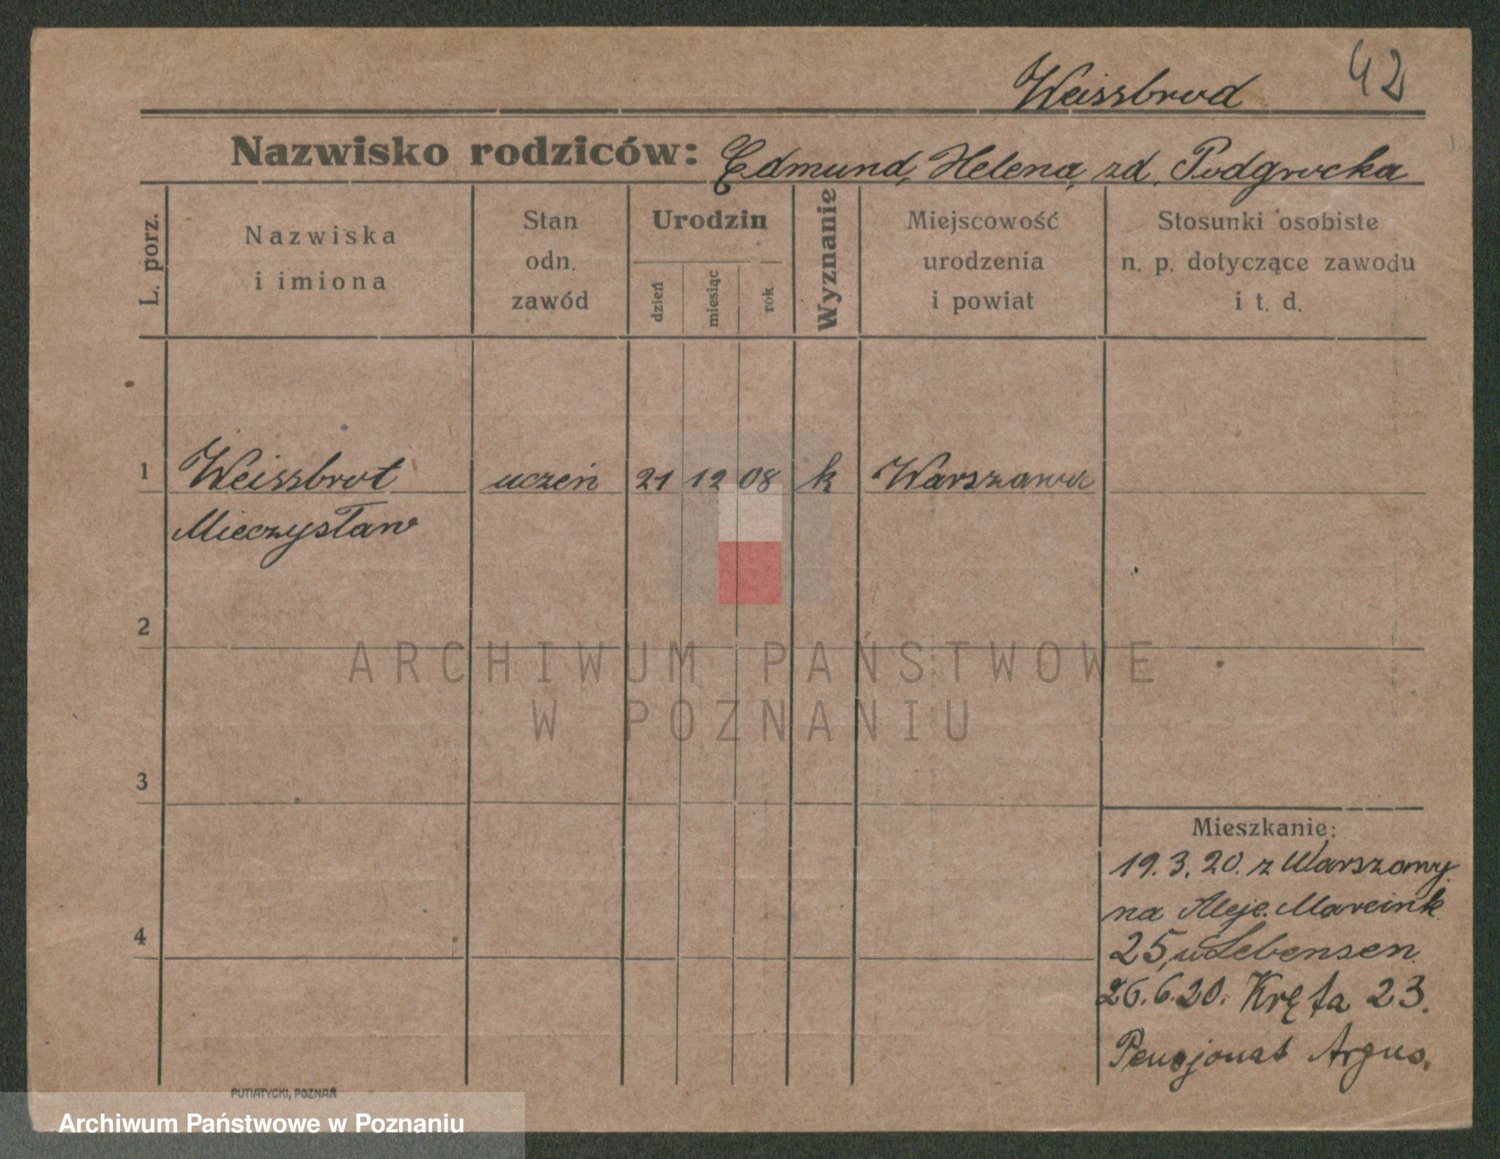 42
Weissbrod
Nazwisko rodziców: Edmund, Helena, zd. Podgrocka
L. porz.
Nazwiska
i imiona
Stan
odn.
zawód
Urodzin
dzień
miesiąc
rok
Wyznanie
Miejscowość
urodzenia
i powiat
Stosunki osobiste
n. p. dotyczące zawodu
i t. d.
1 Weissbrot uczeń 21 12 08 k Warszawa
Mieczysław
2
ARCHIWUM PAŃSTWOWE
W POZNANIU
3
Mieszkanie:
19.3.20. z Warszawy
na Aleje. Marcink.
4
25, u Lebensen
26.6.20. Kręta 23.
Pensjonat Argus.
PUTIATYCKI, POZNAŃ
Archiwum Państwowe w Poznaniu